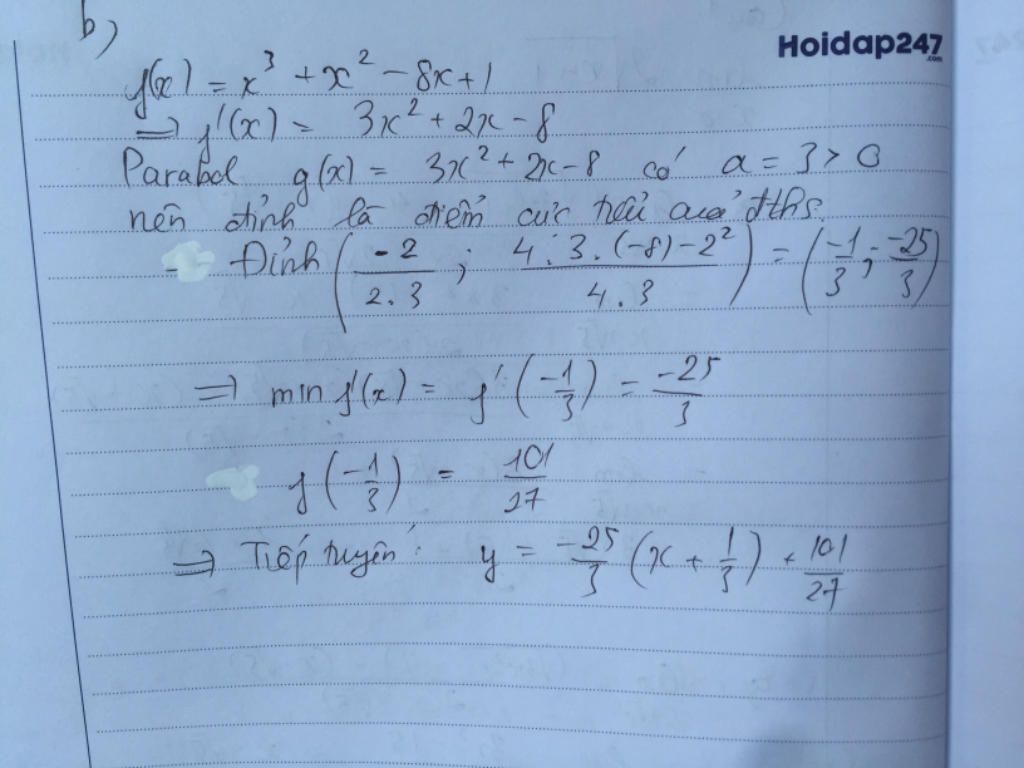 b)
Hoidap247
.com
f(x) = x³ + x² - 8x + 1
⇒ f'(x) = 3x² + 2x - 8
Parabol g(x) = 3x² + 2x - 8 có a = 3 > 0
nên đỉnh là điểm cực tiểu của đths.
- Đỉnh (-2/2.3 ; 4.3.(-8)-2²/4.3) = (-1/3 ; -25/3)
⇒ min f'(x) = f'(-1/3) = -25/3
f(-1/3) = 101/27
⇒ Tiếp tuyến: y = -25/3 (x + 1/3) + 101/27